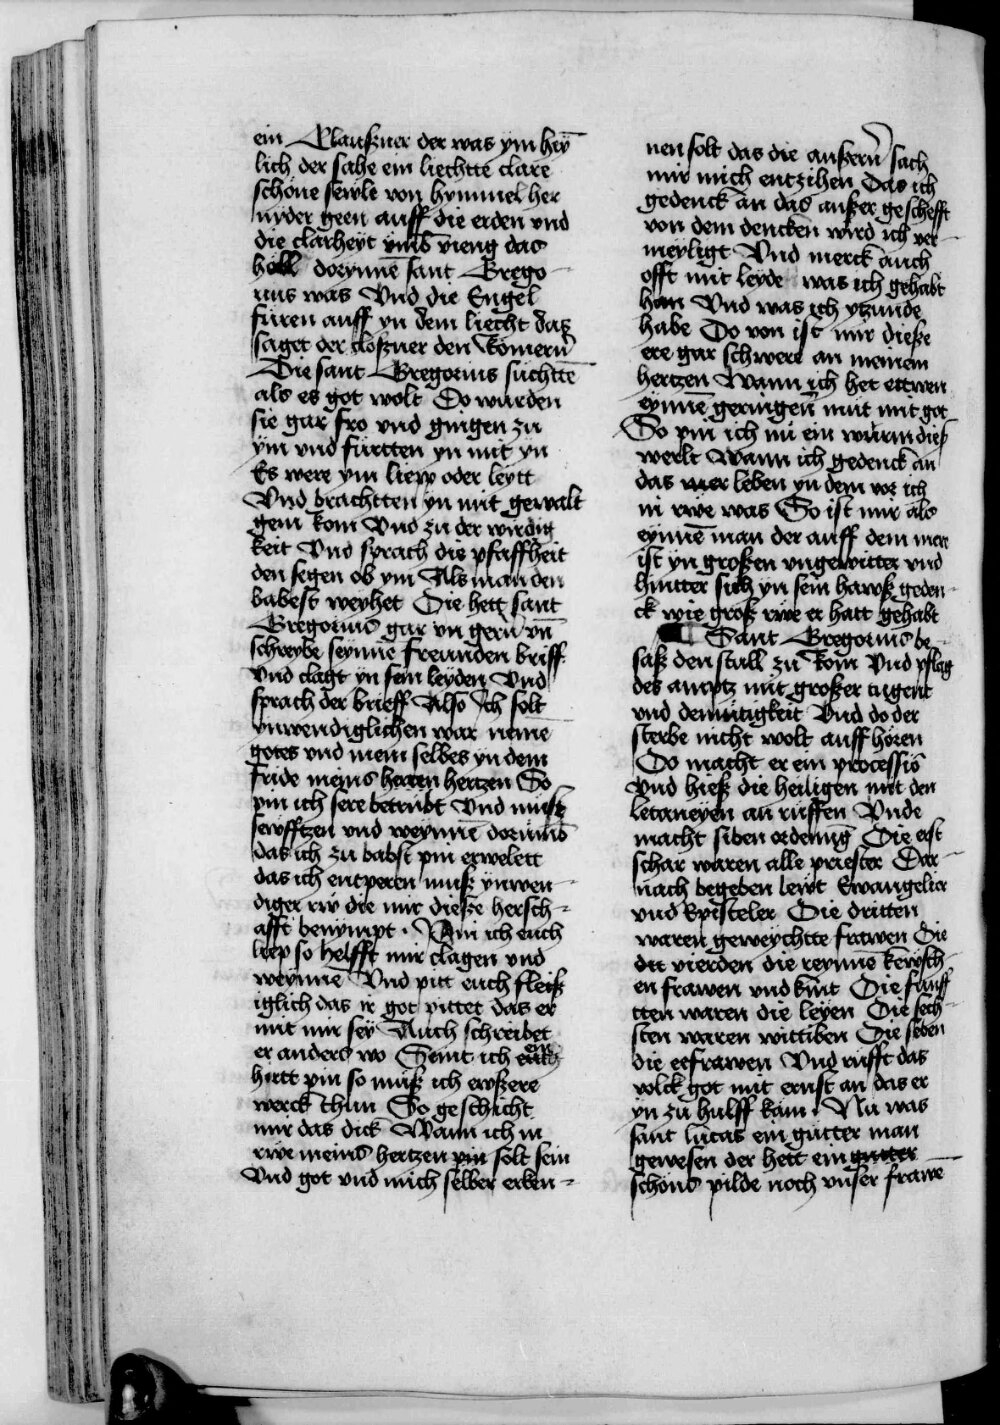 ein Clauszner der was ym hey̅
lich der sahe ein liechtte clare
schöne sewle von hymmel her
nyder geen auff die erden vnd
die clarheyt ymb vieng das
holl dorynne̅ sant Grego-
rius was Vnd die Engel
füren auff yn dem liecht das
saget der closzner den Romern
Die sant Gregorius suchtte̅
als es got wolt Do wurden
sie gar fro vnd gingen zu
ym vnd fürtten yn mit yn
Es were ym liepp oder leytt
Vnd brachtten yn mit gewalt
gein Rom Vnd zu der wirdig
keit Vnd sprach die pfaffheit
den segen ob ym Als man den
babest weyhet Die hett sant
Gregorius gar vn gern vn̅
schreybe seynne freunden briff
Vnd clagt yn sein leyden Vnd
sprach der brieff Also Ich solt
ynwendiglichen war neme
gotes vnd mein selbes yn dem
fride meins herren hertzen So
pin ich sere betrubt Vnd musz
sewfftzen vnd weynne̅ dorumb
das ich zu babst pin erwelett
das ich entperen musz ynwen-
diger rw die mir diesze hersch-
afft benympt. Bin ich euch
liep so helfft mir clagen vnd
weynne̅ Vnd pitt euch fleisz
iglich das ir got pittet das er
mit mir sey Auch schreibet
er anders wo Seint ich ein
hirtt pin so musz ich ewszere
werck thun So geschicht
mir das dick Wann ich in
rwe meins hertzen pin solt sein
Vnd got vnd mich selber erken-
nen solt das die auszern sach
mir mich entzihen Das ich
gedenck an das auszer geschefft
von dem dencken wird ich ver-
meyligt Vnd merck auch
offt mit leyde was ich gehabt
han Vnd was ich ytzunde
habe Do von ist mir diesze
ere gar schwere an meinem
hertzen Wann ich het ettwen
eynne̅ geringen̅ mut mit got
So pin ich nu ein wurm diesz
werlt Wann ich gedenck an
das leben yn dem vor ich
in rwe was So ist mir als
eynne̅ man der auff dem mere
ist yn groszen vngewitter vnd
hintter sich yn sein hawsz geden-
ck wie grosz rwe er hatt gehabt
Sant Gregorius be-
sasz den stull zu Rom Vnd pflag
des amptz mit groszer tugent
vnd demutigkeit Vnd do der
sterbe nicht wolt auff hören
Do macht er ein processio̅
Vnd hiesz die heiligen mit den
letaneyen an ruffen Vnde
macht siben ordenung Die erst
schar waren alle priester Dar-
nach begeben lewt Ewangelier
vnd Episteler Die dritten
waren geweychtte frawen Die
vierden die reynne̅ kewsch-
en frawen vnd kint Die funff
tten waren die leyen Die sech-
sten waren wittiben Die siben
die eefrawen Vnd rufft das
volck got mit ernst an das er
yn zu hulff kam. Nu was
sant lucas ein gutter man
gewesen der hett ein gutter
schöns pilde noch vnser frawe̅